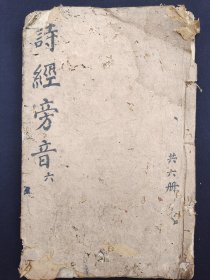 詩經旁音六
共六册